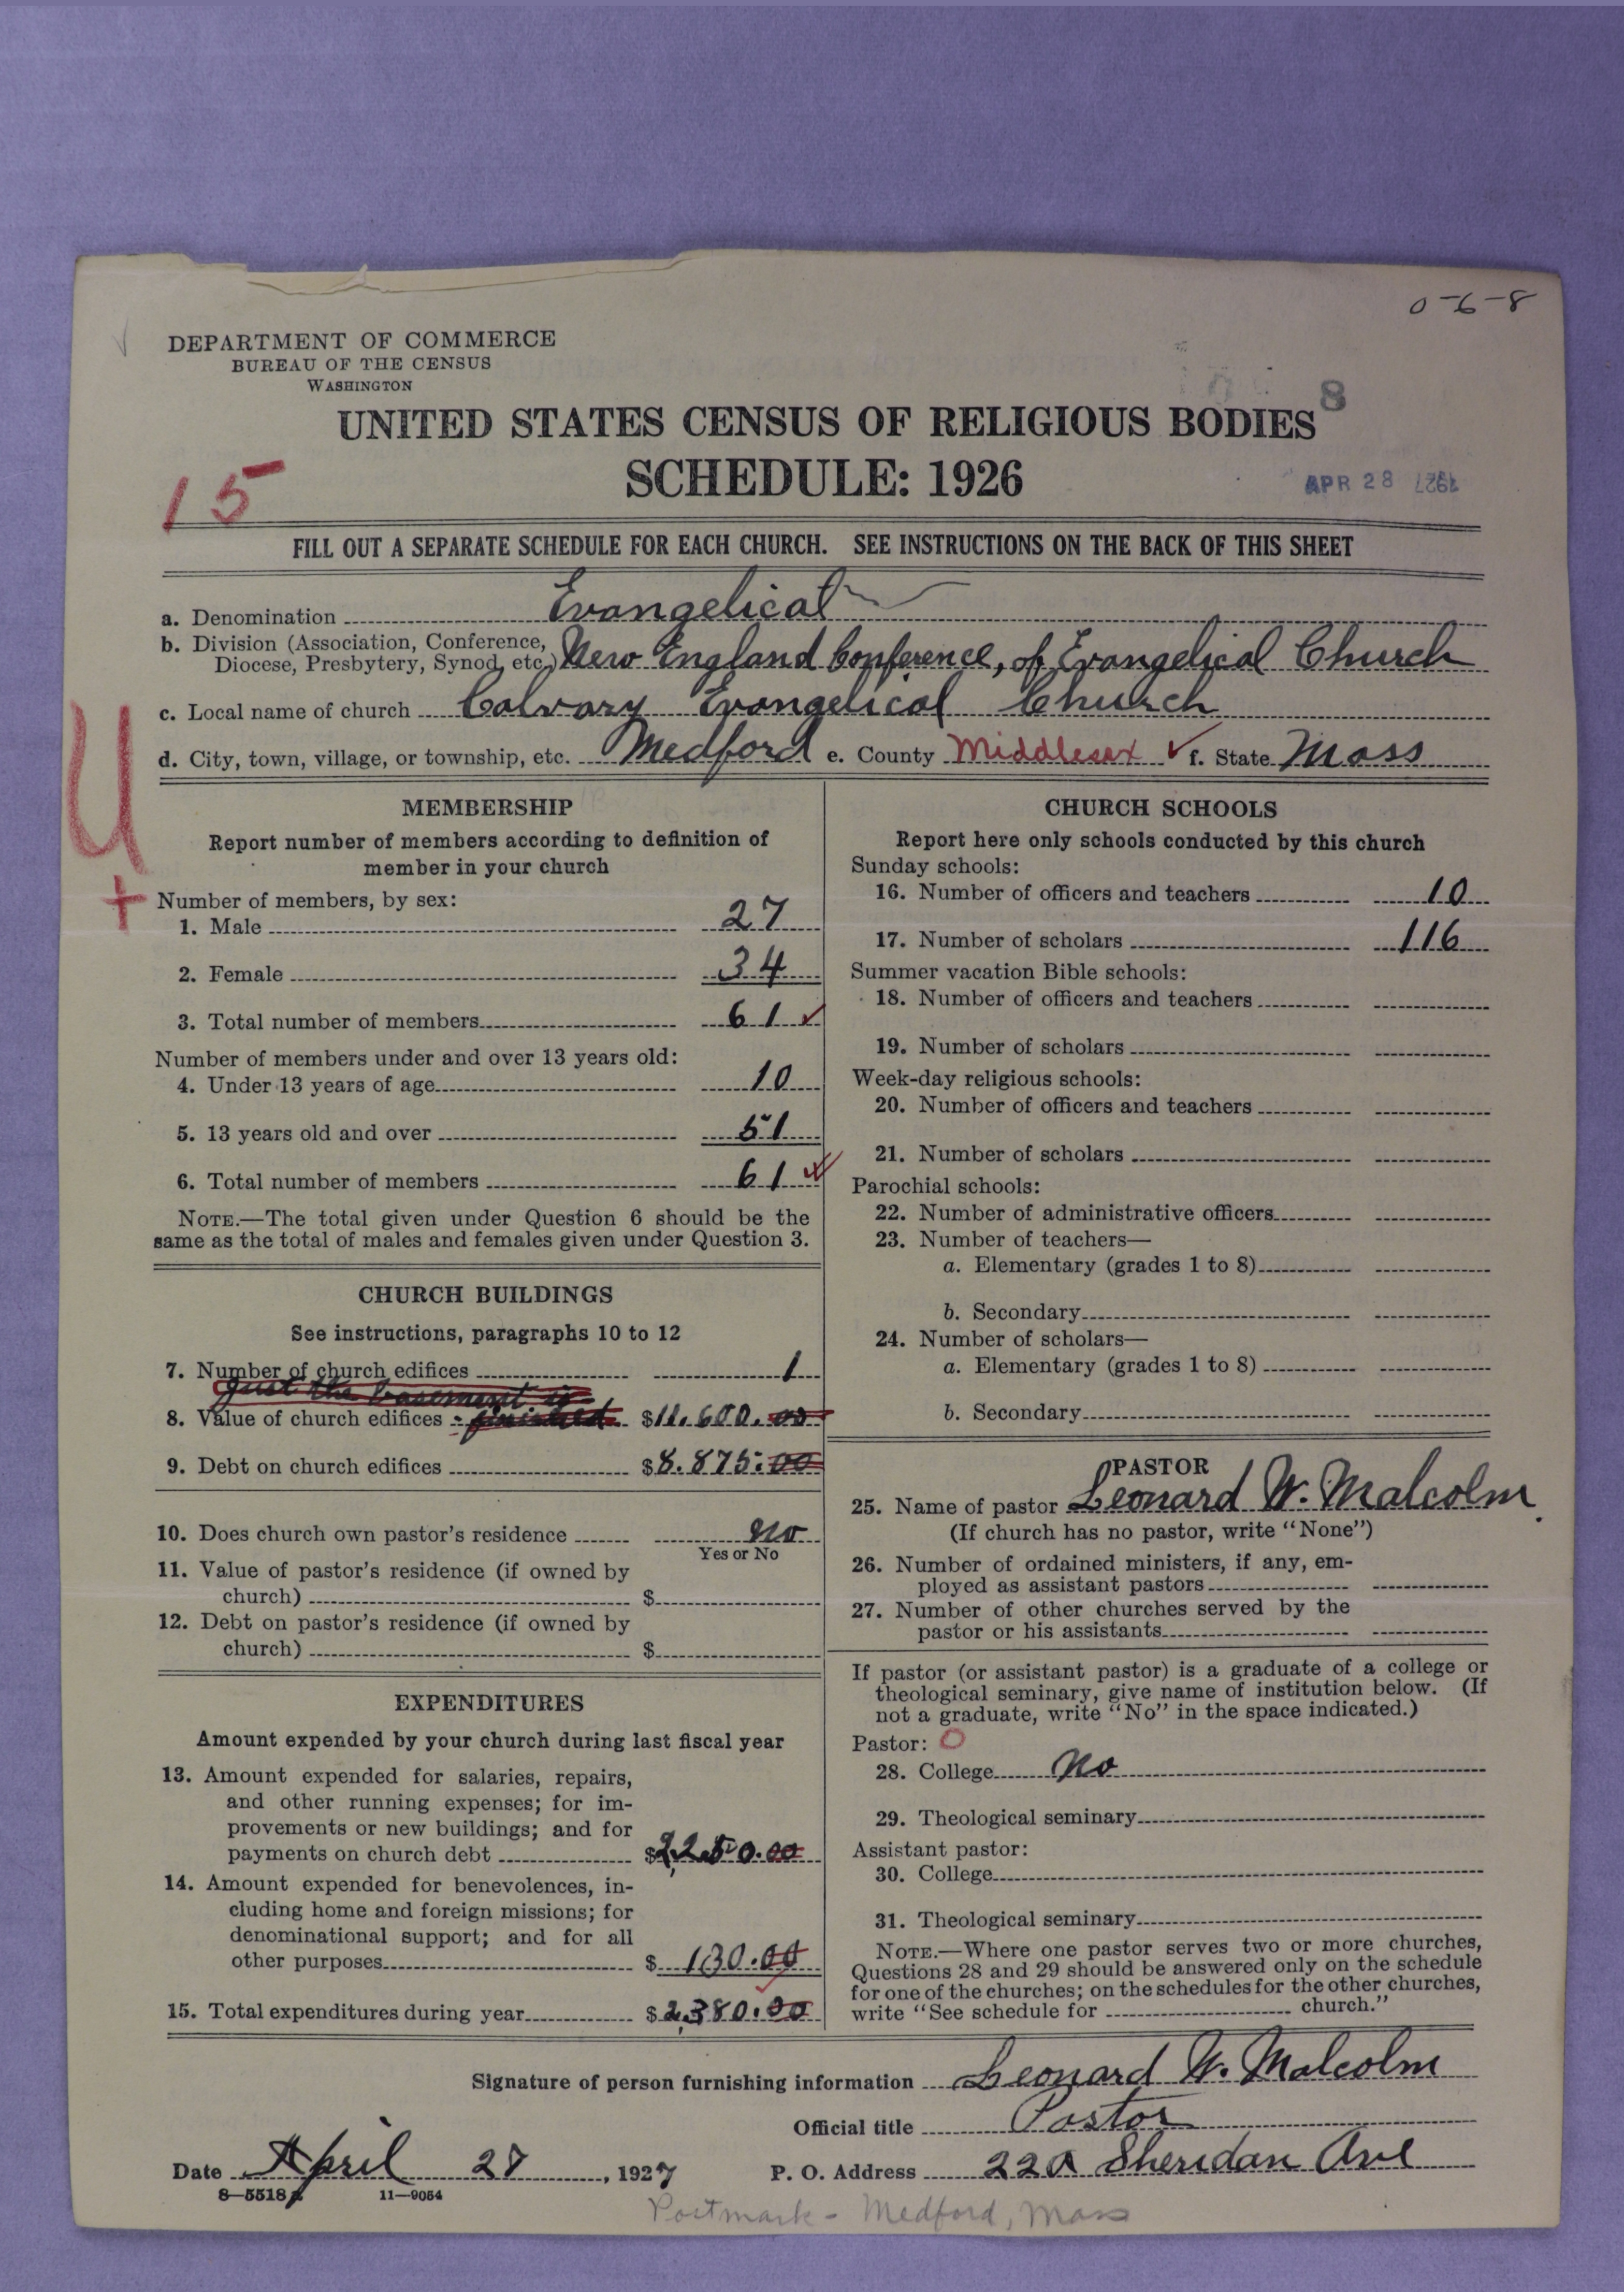 0-6-8
DEPARTMENT OF COMMERCE
BUREAU OF THE CENSUS
WASHINGTON
8
UNITED STATES CENSUS OF RELIGIOUS BODIES
SCHEDULE: 1926
15
APR 28 1927
FILL OUT A SEPARATE SCHEDULE FOR EACH CHURCH. SEE INSTRUCTIONS ON THE BACK OF THIS SHEET
a. Denomination Evangelical
b. Division (Association, Conference,
Diocese, Presbytery, Synod, etc.) New England Conference, of Evangelical Church
c. Local name of church Calvary Evangelical Church
d. City, town, village, or township, etc. Medford e. County Middlesex ✓ f. State Mass
U
+
MEMBERSHIP
Report number of members according to definition of
member in your church
Number of members, by sex:
1. Male 27
2. Female 34
3. Total number of members 61 ✓
Number of members under and over 13 years old:
4. Under 13 years of age 10
5. 13 years old and over 51
6. Total number of members 61 ✓
NOTE.—The total given under Question 6 should be the
same as the total of males and females given under Question 3.
CHURCH BUILDINGS
See instructions, paragraphs 10 to 12
7. Number of church edifices 1
just the basement is
8. Value of church edifices - finished $11.600.00
9. Debt on church edifices $8.875.00
10. Does church own pastor's residence no
Yes or No
11. Value of pastor's residence (if owned by
church) $
12. Debt on pastor's residence (if owned by
church) $
EXPENDITURES
Amount expended by your church during last fiscal year
13. Amount expended for salaries, repairs,
and other running expenses; for im-
provements or new buildings; and for
payments on church debt $2,250.00
14. Amount expended for benevolences, in-
cluding home and foreign missions; for
denominational support; and for all
other purposes $ 130.00
15. Total expenditures during year $2,380.00
CHURCH SCHOOLS
Report here only schools conducted by this church
Sunday schools:
16. Number of officers and teachers 10
17. Number of scholars 116
Summer vacation Bible schools:
18. Number of officers and teachers
19. Number of scholars
Week-day religious schools:
20. Number of officers and teachers
21. Number of scholars
Parochial schools:
22. Number of administrative officers
23. Number of teachers—
a. Elementary (grades 1 to 8)
b. Secondary
24. Number of scholars—
a. Elementary (grades 1 to 8)
b. Secondary
PASTOR
25. Name of pastor Leonard W. Malcolm.
(If church has no pastor, write "None")
26. Number of ordained ministers, if any, em-
ployed as assistant pastors
27. Number of other churches served by the
pastor or his assistants
If pastor (or assistant pastor) is a graduate of a college or
theological seminary, give name of institution below. (If
not a graduate, write "No" in the space indicated.)
Pastor: O
28. College no
29. Theological seminary
Assistant pastor:
30. College
31. Theological seminary
NOTE.—Where one pastor serves two or more churches,
Questions 28 and 29 should be answered only on the schedule
for one of the churches; on the schedules for the other churches,
write "See schedule for church."
Signature of person furnishing information Leonard W. Malcolm
Official title Pastor
Date April 27, 1927 P. O. Address 22a Sheridan Ave
8—5518 11—9054
Postmark - Medford, Mass